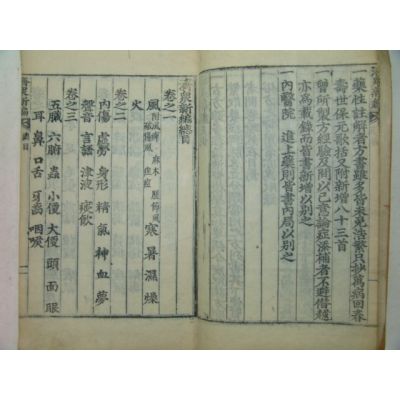 濟衆新編
一藥性註解者方書雖多皆未免浩繁只抄萬病回春
壽世保元歌括又附新增八十三首
一曾所製方經驗及聞以己意論症添補者不避僭越
亦爲載錄而皆書新增以別之
一內醫院 進上藥則皆書內局以別之
濟衆新編總目
卷之一
風 麻木 歷節風 破傷風 寒 暑 濕 燥
火
卷之二
內傷 虛勞 身形 精 氣 神 血 夢
聲音 言語 津液 痰飮
卷之三
五臟 六腑 蟲 小便 大便 頭 面 眼
耳 鼻 口舌 牙齒 咽喉
濟衆新編 總目